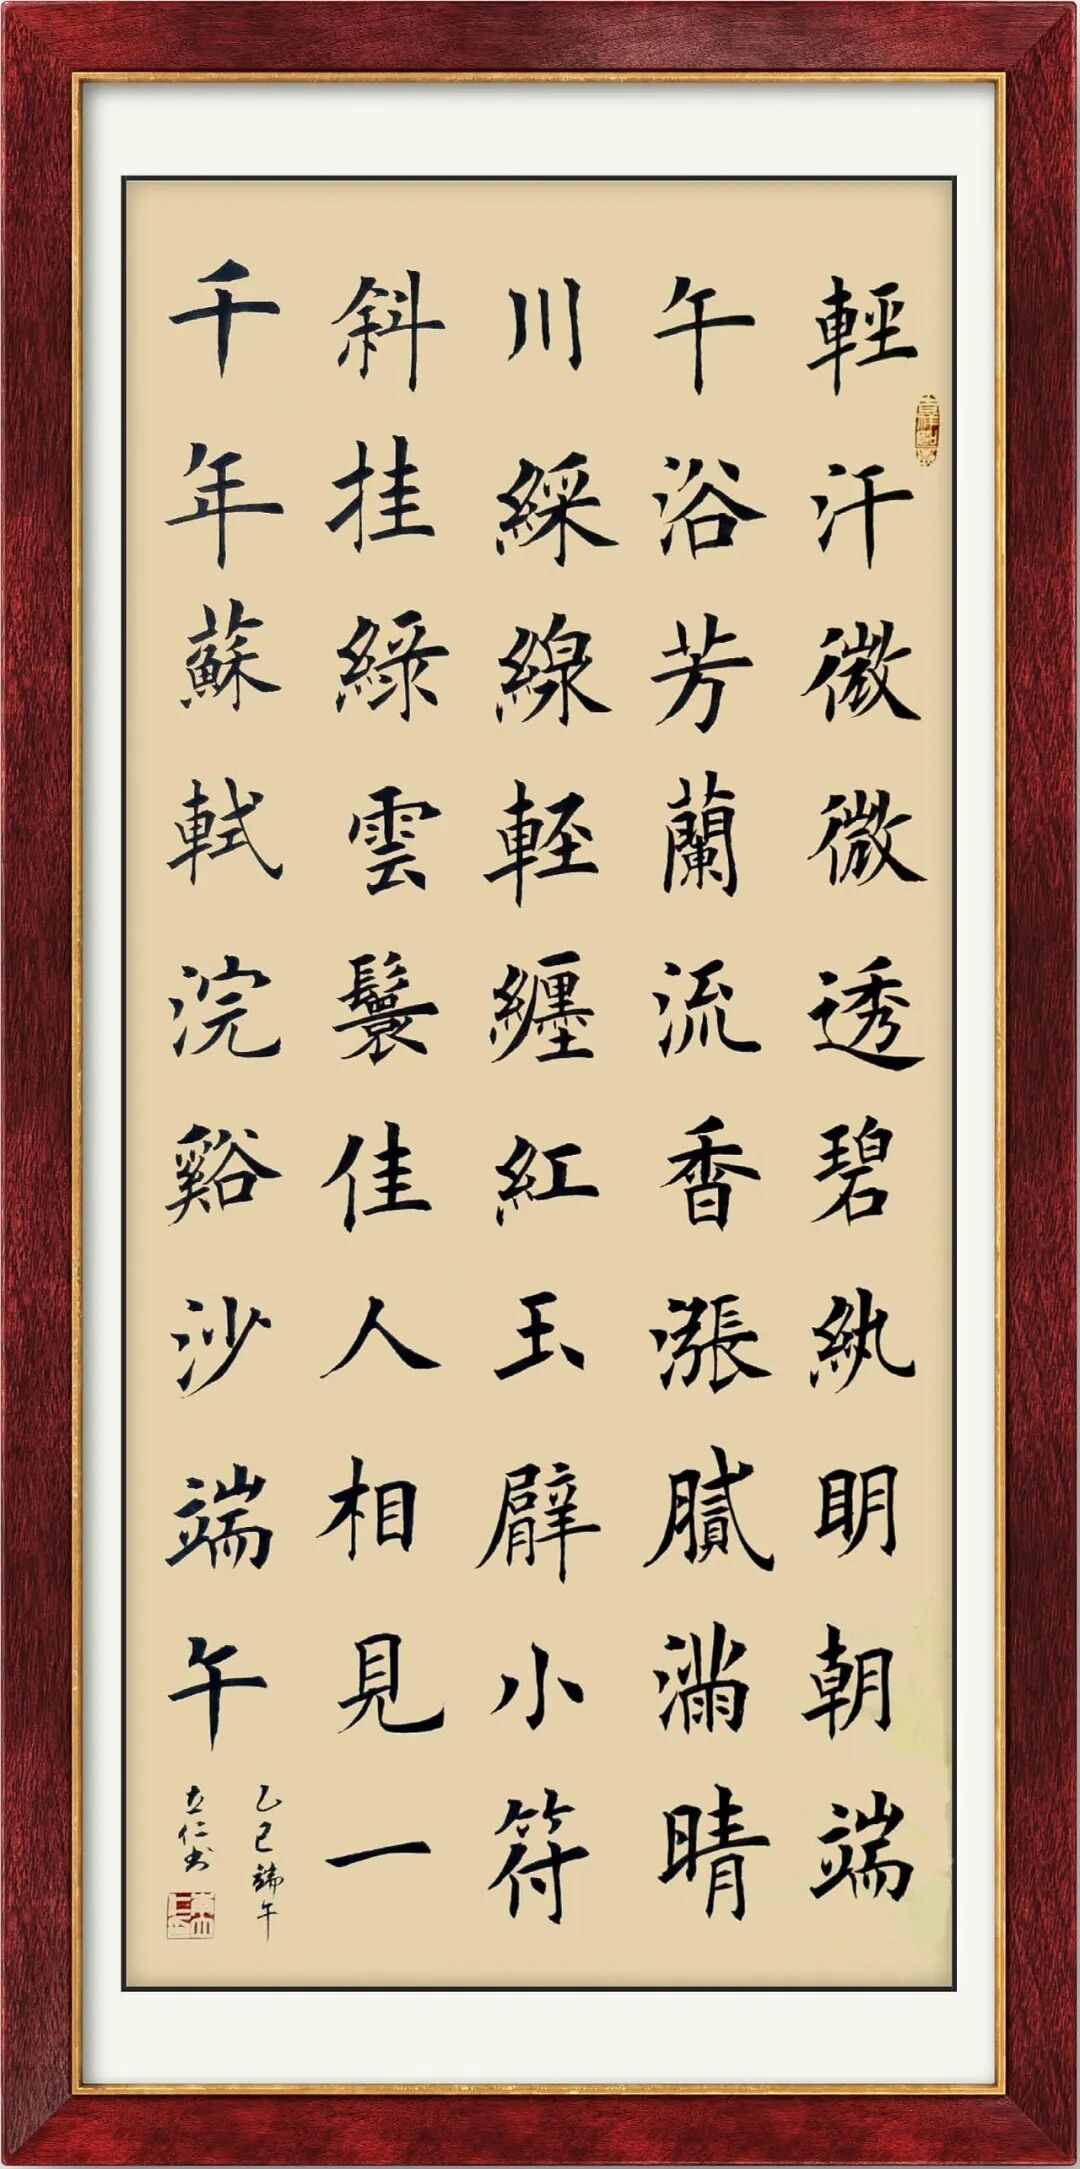 輕汗微微透碧紈明朝端
午浴芳蘭流香漲膩滿晴
川綵線輕纏紅玉臂小符
斜挂綠雲鬟佳人相見一
千年蘇軾浣谿沙端午
乙巳端午
立仁书